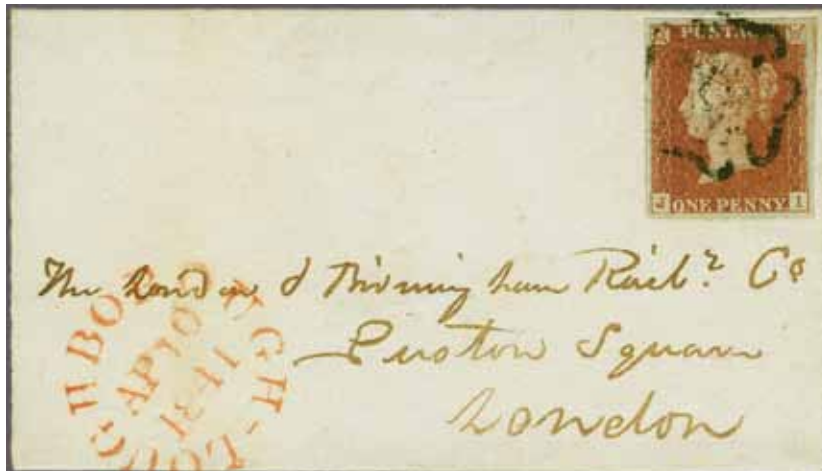 POSTAGE
J ONE PENNY I
The London & Birmingham Raily Co
Euston Square
London
LOUGHBOROUGH
AP 10
1841